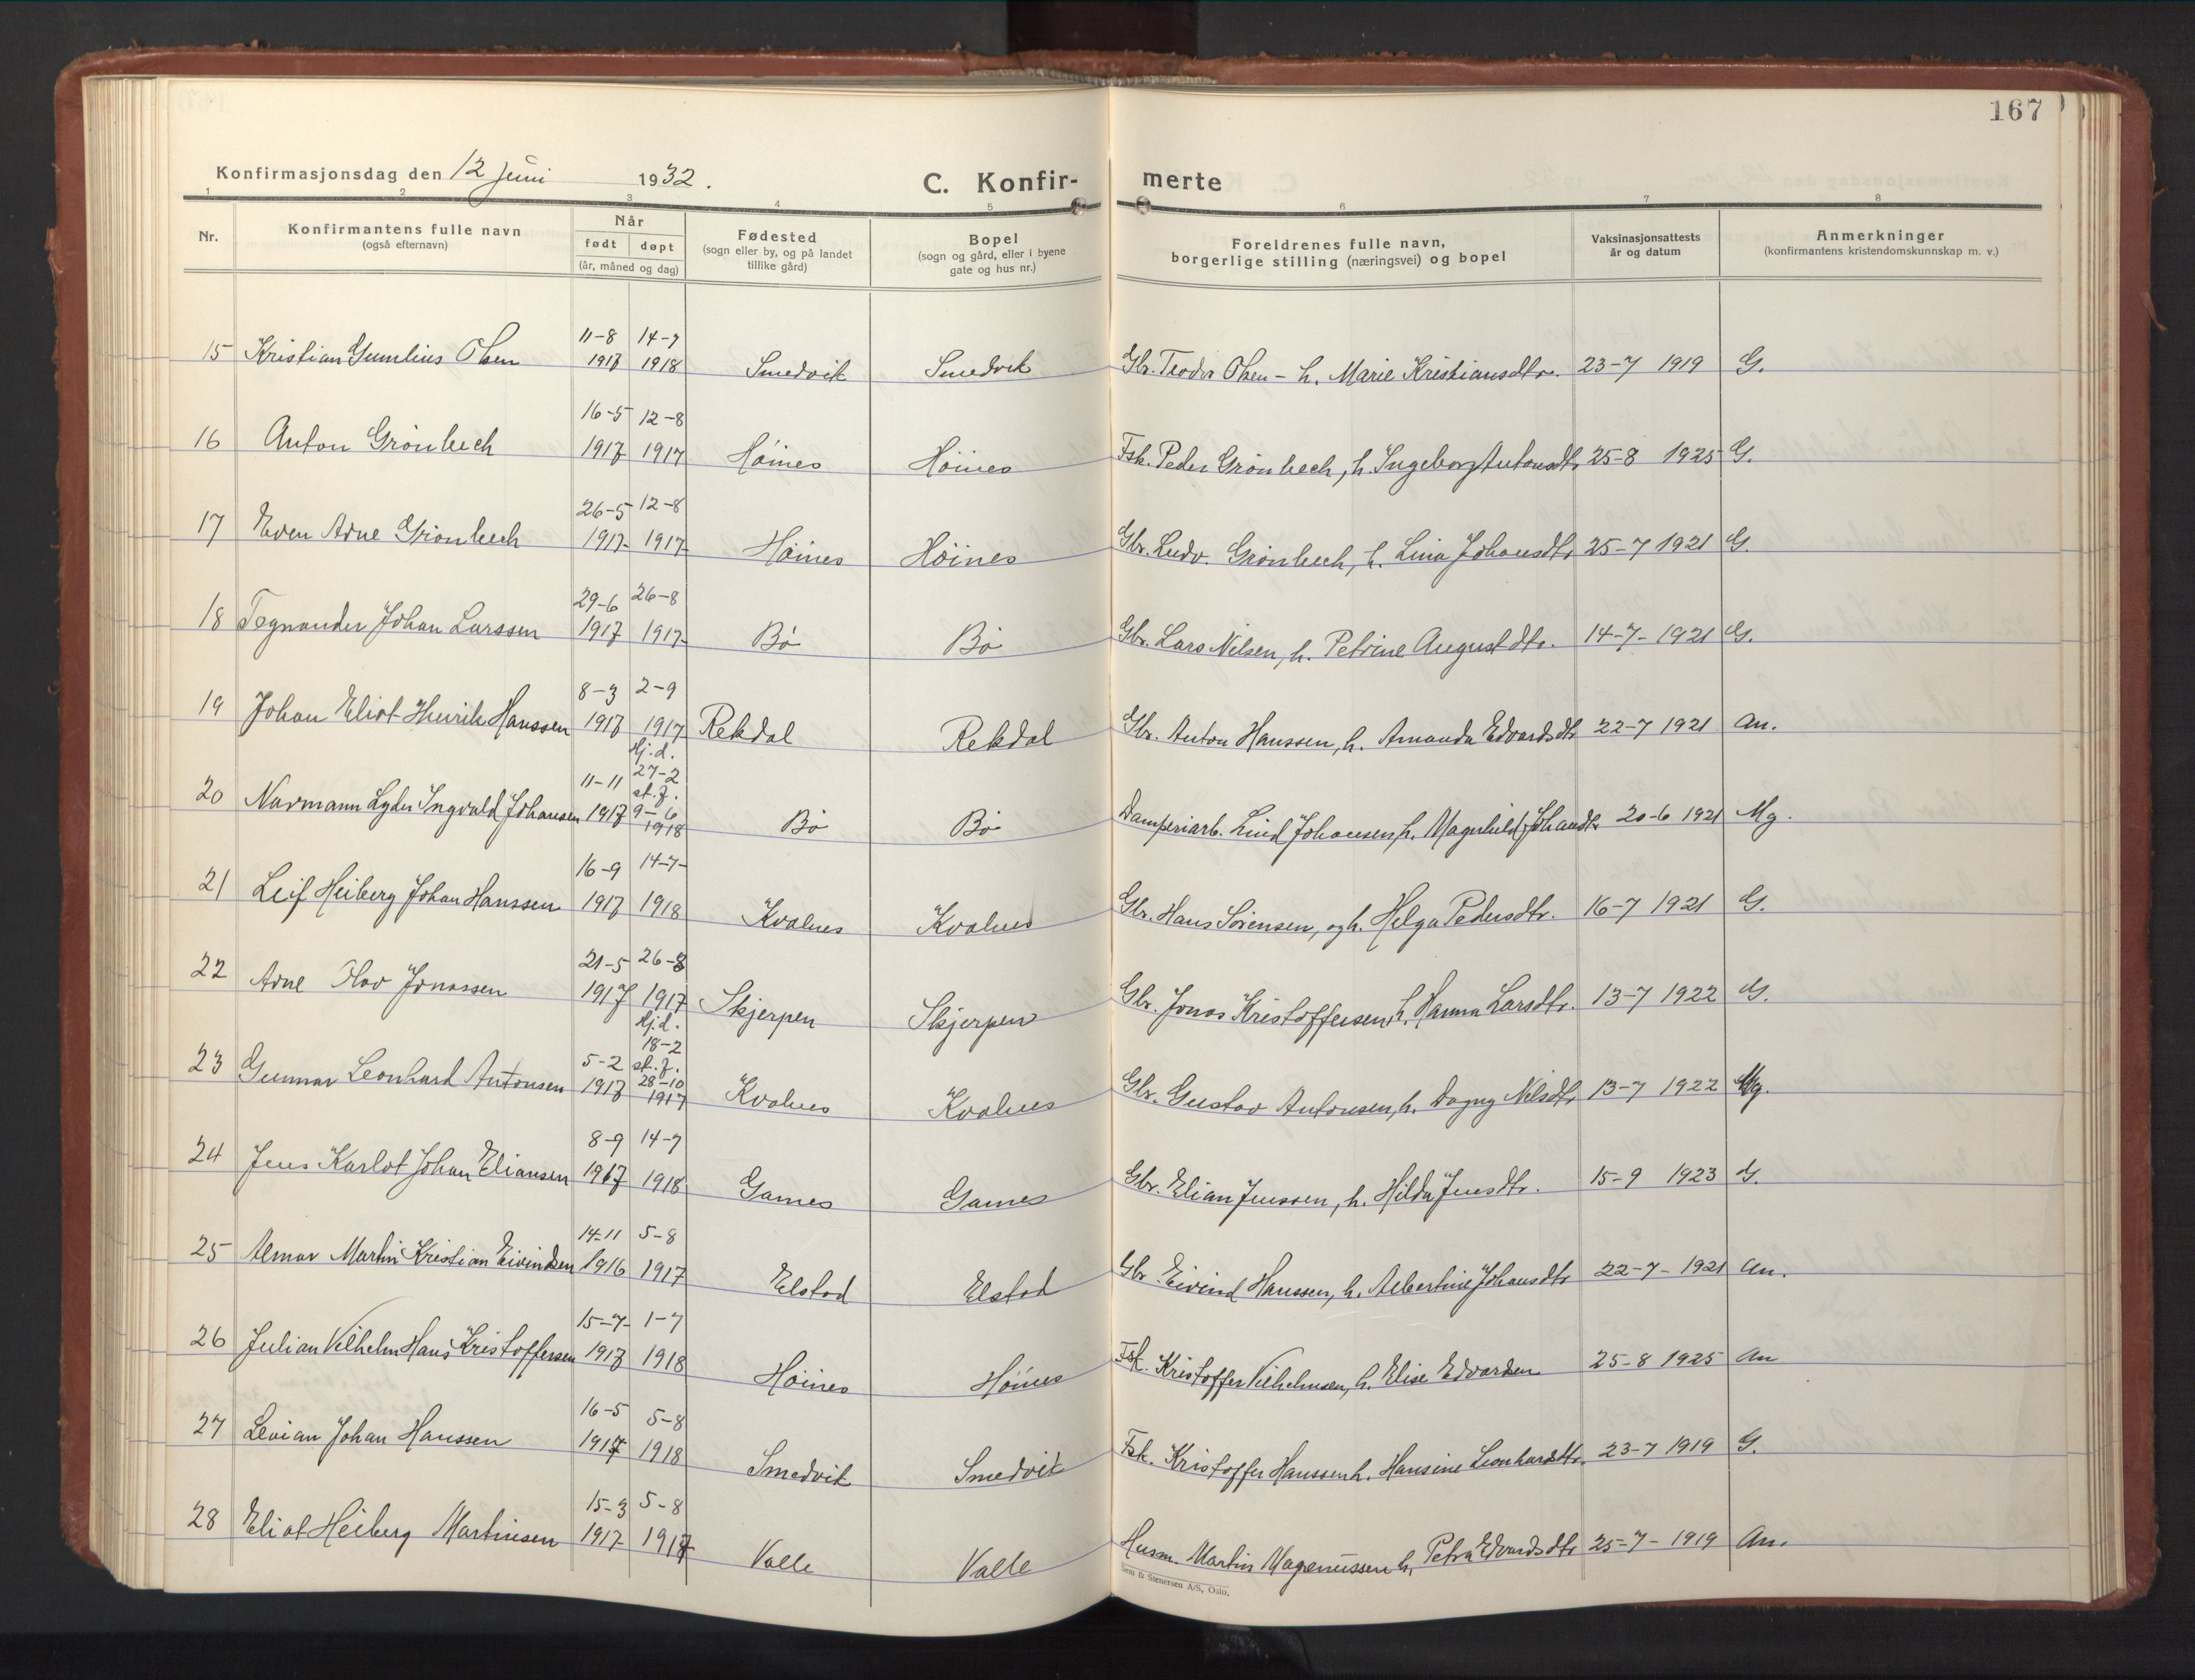 167
Konfirmasjonsdag den 12 juni 1932.
C. Konfir- merte
1 2 3 4 5 6 7 8
Nr. Konfirmantens fulle navn (også efternavn) Når født døpt (år, måned og dag) Fødested (sogn eller by, og på landet tillike gård) Bopel (sogn og gård, eller i byene gate og hus nr.) Foreldrenes fulle navn, borgerlige stilling (næringsvei) og bopel Vaksinasjonsattests år og datum Anmerkninger (konfirmantens kristendomskunnskap m. v.)
15 Kristian Olsen 11-8 1917 14-7 1918 Smedvik Smedvik Gbr. Teodor Olsen - h. Marie Kristiansdtr. 23-7 1919 G.
16 Anton Grönbech 16-5 1917 12-8 1917 Höines Höines Fsk. Peder Grönbech, h. Ingeborg Antonsdtr 25-8 1925 G.
17 Even Arne Grönbech 26-5 1917 12-8 1917 Höines Höines Gbr. Ludv. Grönbech, h. Lina Johansdtr 25-7 1921 G.
18 Tegnander Johan Larssen 29-6 1917 26-8 1917 Bö Bö Gbr. Lars Nilsen, h. Petrine Augustdtr. 14-7-1921 G.
19 Johan Eliot Henrik Hanssen 8-3 1917 2-9 1917 Rekdal Rekdal Gbr. Anton Hanssen, h. Amanda Edvardsdtr 22-7 1921 An.
20 Narmann Lyder Ingvald Johansen 11-11 1917 Hj.d. 27-2 st.f. 9-6 1918 Bö Bö Damperiarb. Lind Johansen, h. Magnhild Johandtr 20-6 1921 Mg.
21 Leif Heiberg Johan Hanssen 16-9 1917 14-7- 1918 Kvalnes Kvalnes Gbr. Hans Sörensen, og h. Helga Pedersdtr. 16-7 1921 G.
22 Arne Olav Jonassen 21-5 1917 26-8 1917 Skjerpen Skjerpen Gbr. Jonas Kristoffersen, h. Hanna Larsdtr. 13-7 1922 G.
23 Gunnar Leonhard Antonsen 5-2 1917 Hj.d. 18-2 st.f. 28-10 1917 Kvalnes Kvalnes Gbr. Gustav Antonsen, h. Dagny Nilsdtr 13-7 1922 Mg.
24 Jens Karlot Johan Eliansen 8-9 1917 14-7 1918 Garnes Garnes Gbr. Elian Jenssen, h. Hilda Jensdtr. 15-9 1923 G.
25 Almar Martin Kristian Eivindsen 14-11 1916 5-8 1917 Elstad Elstad Gbr. Eivind Hanssen, h. Albertine Johansdtr 22-7-1921 An.
26 Julian Vilhelm Hans Kristoffersen 15-7- 1917 1-7 1918 Höines Höines Fsk. Kristoffer Vilhelmsen, h. Elise Edvardsen 25-8 1925 An
27 Levian Johan Hanssen 16-5 1917 5-8 1918 Smedvik Smedvik Fsk. Kristoffer Hanssen h. Hansine Leonhardsdtr. 23-7 1919 G.
28 Eliot Heiberg Martinsen 15-3 1917 5-8 1917 Valle Valle Husm. Martin Magenussen h. Petra Edvardsdtr 25-7-1919 An.
Sem & Stenersen A/S, Oslo.